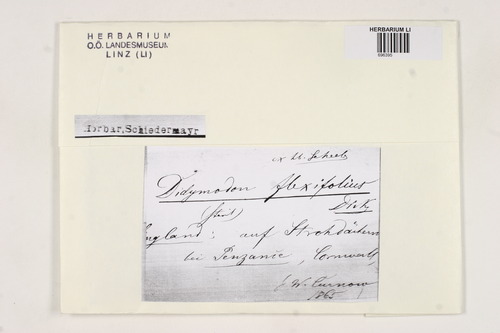 HERBARIUM
O.Ö. LANDESMUSEUM
LINZ (LI)
HERBARIUM LI
Herbar. Schiedermayr
ex
Didymodon flexifolius
Dicks
England: auf Strohdächern
bei Penzance, Cornwall,
W. Curnow
1865